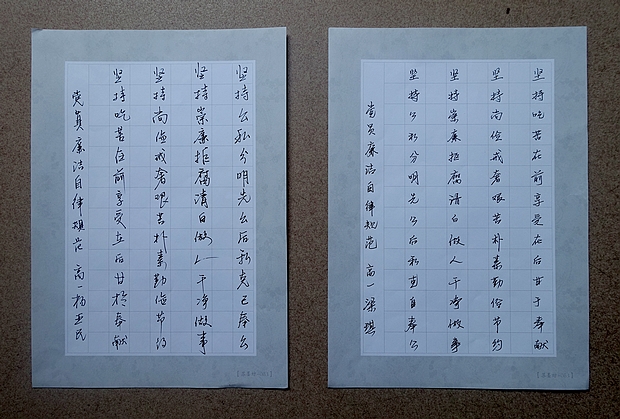 坚持公私分明先公后私克己奉公
坚持崇廉拒腐清白做人干净做事
坚持尚俭戒奢艰苦朴素勤俭节约
坚持吃苦在前享受在后甘于奉献
党员廉洁自律规范 高一杨亚民
党员廉洁自律规范 高一梁琪
坚持公私分明先公后私克自奉公
坚持崇廉拒腐清白做人干净做事
坚持尚俭戒奢艰苦朴素勤俭节约
坚持吃苦在前享受在后甘于奉献